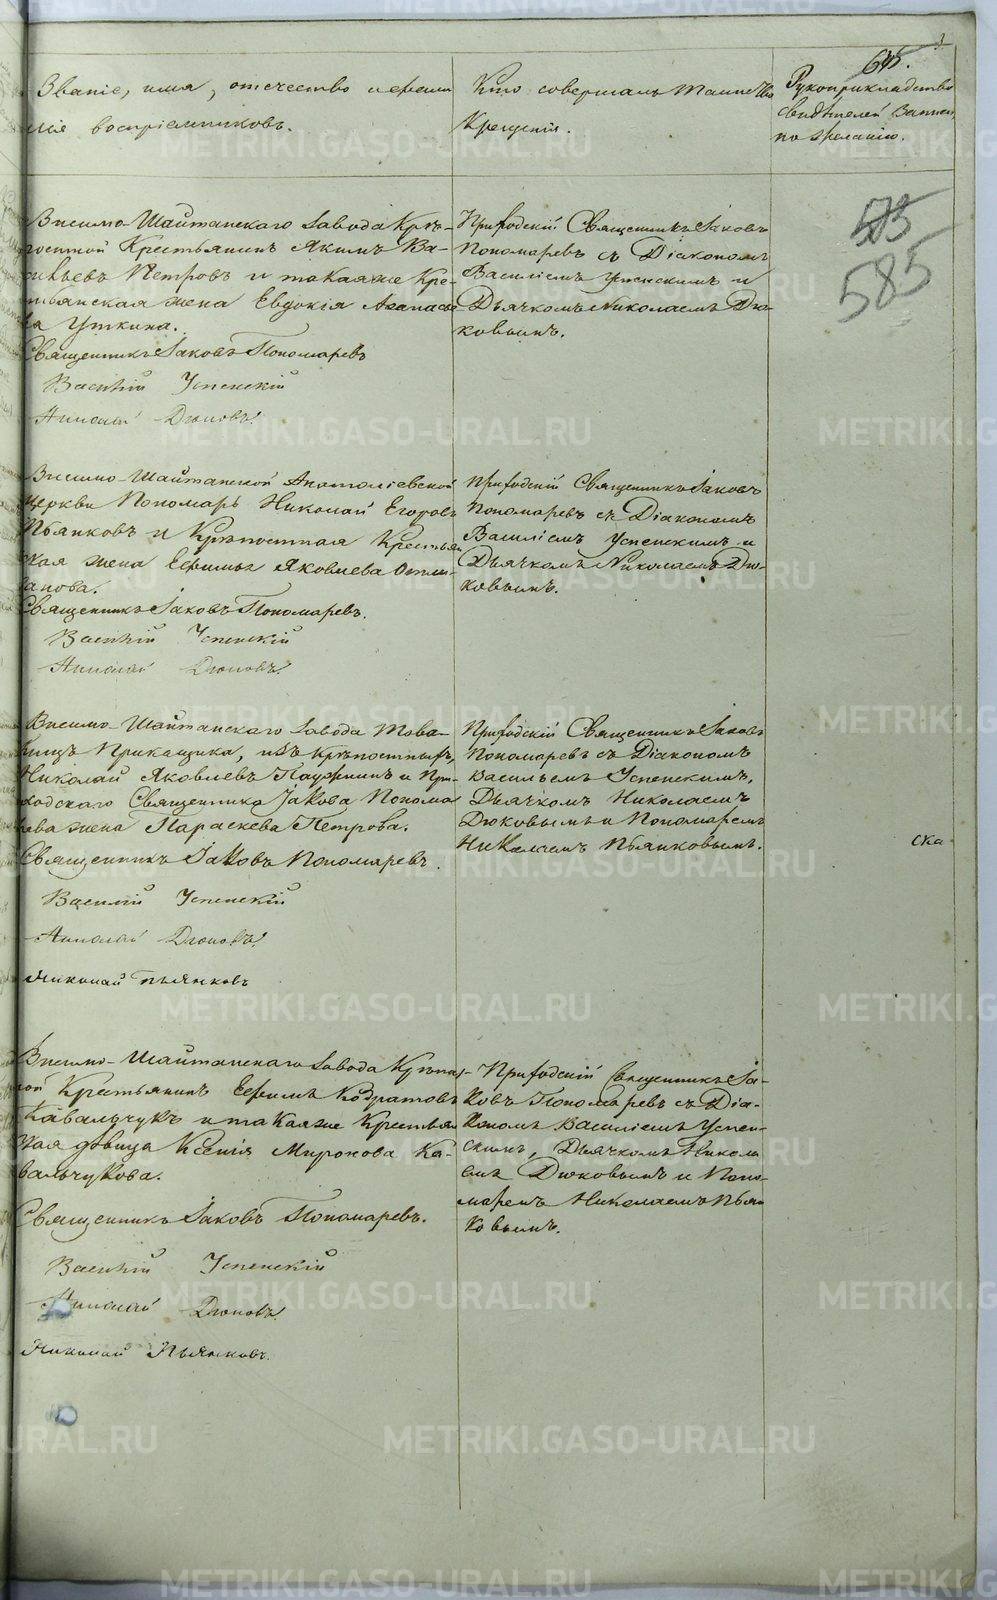 3
615.
Званіе, имя, отечество и фами
лія воспріемниковъ.
Кто совершалъ таинство
Крещенія.
Рукоприкладство
свидѣтелей записи
по желанію.
573
585
Висимо-Шайтанскаго Завода Крѣ-
постной Крестьянинъ Якимъ Ва-
сильевъ Петровъ и такаяже Кре-
стьянская жена Евдокія Аѳанасье
ва Уткина.
Священникъ Іаковъ Пономаревъ
Василій Успенскій
Николай Дюковъ.
Приходскій Священникъ Іаковъ
Пономаревъ съ Діакономъ
Василіемъ Успенскимъ и
Дьячкомъ Николаемъ Дю-
ковымъ.
Висимо-Шайтанской Анатоліевской
церкви Пономарь Николай Егоровъ
Пьянковъ и Крѣпостная Крестьян
ская жена Ефимья Яковлева
Священникъ Іаковъ Пономаревъ.
Василій Успенскій
Николай Дюковъ.
Приходскій Священникъ Іаковъ
Пономаревъ съ Діакономъ
Василіемъ Успенскимъ и
Дьячкомъ Николаемъ Дю-
ковымъ.
Висимо-Шайтанскаго Завода Това-
рищъ Прикащика, изъ крѣпостныхъ,
Николай Яковлевъ и При-
ходскаго Священника Іакова Понома
рева жена Параскева Петрова.
Священникъ Іаковъ Пономаревъ.
Василій Успенскій
Николай Дюковъ.
Николай Пьянковъ
Приходскій Священникъ Іаковъ
Пономаревъ съ Діакономъ
Васильемъ Успенскимъ,
Дьячкомъ Николаемъ
Дюковымъ и Пономаремъ
Николаемъ Пьянковымъ.
ска
Висимо-Шайтанскаго Завода Крѣпост-
ной Крестьянинъ Ефимъ Кодратовъ
Кавальчукъ и такаяже Крестьян
ская дѣвица Ксенія Миронова Ка-
вальчукова.
Священникъ Іаковъ Пономаревъ.
Василій Успенскій
Николай Дюковъ.
Николай Пьянковъ.
Приходскій Священникъ Іа-
ковъ Пономаревъ съ Діа-
кономъ Василіемъ Успен-
скимъ, Дьячкомъ Никола
емъ Дюковымъ и Поно-
маремъ Николаемъ Пьян
ковымъ.
METRIKI.GASO-URAL.RU